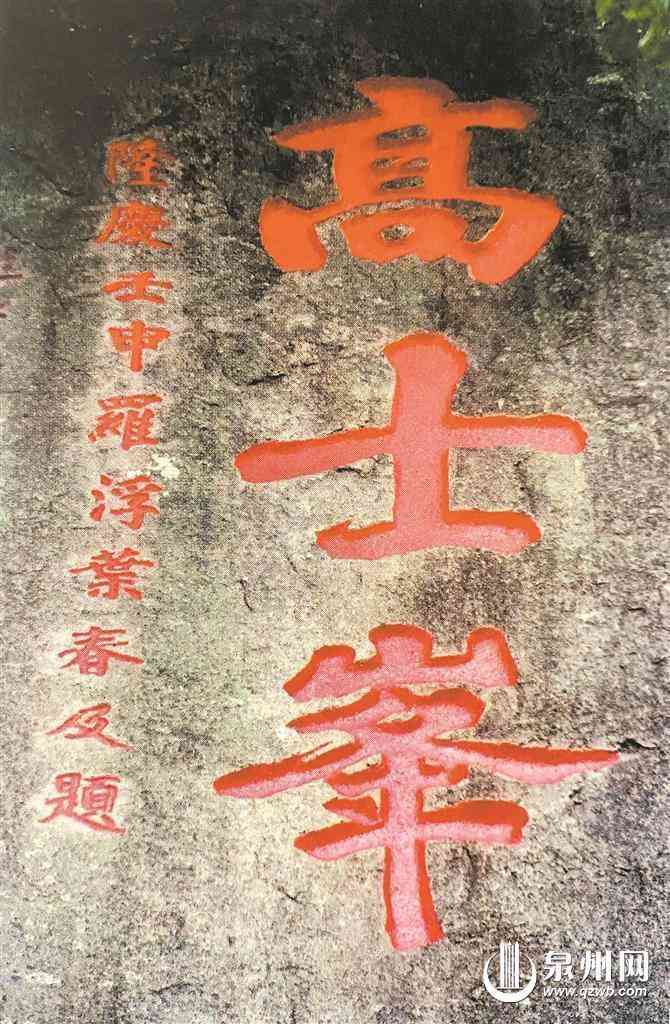 高士峯
隆慶壬申羅浮葉春及題
泉州网
www.qzwb.com